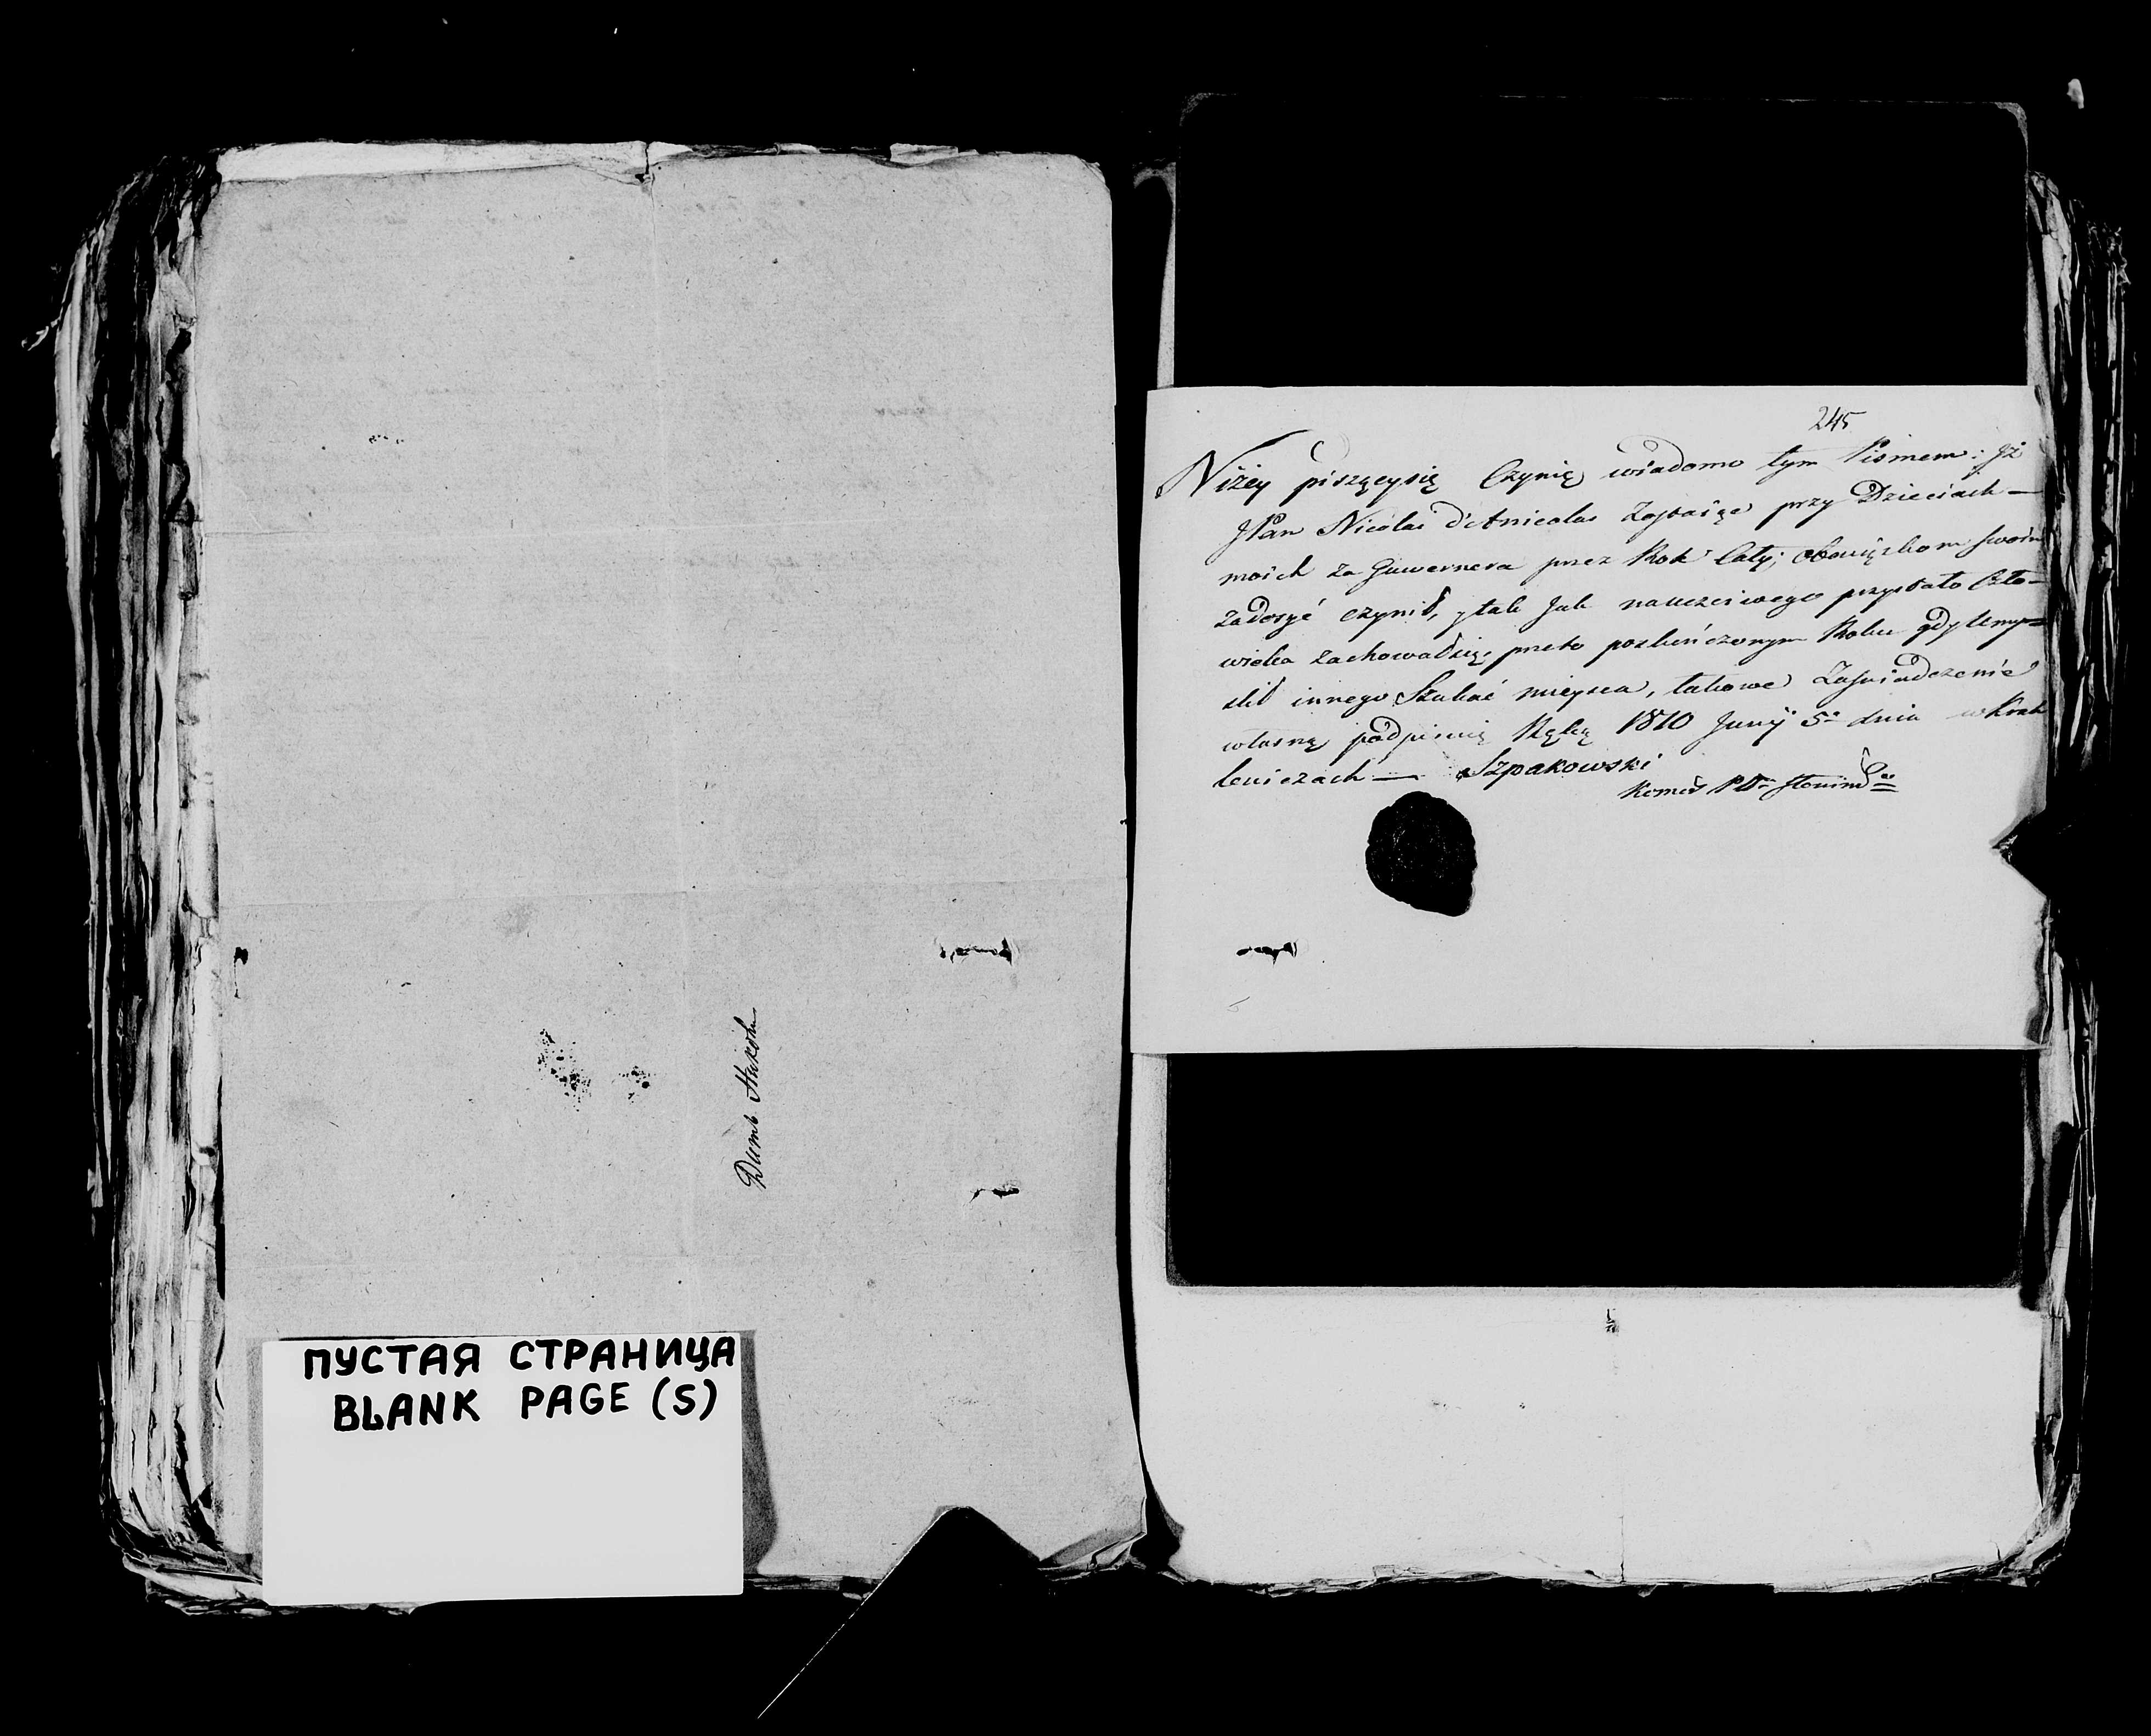 ПУСТАЯ СТРАНИЦА
BLANK PAGE (S)
245
Niżey piszącysię Czynię wiadomo tym Pismem: Jż
JPan Nicolas d'Anicolas Zostaiąc przy Dzieciach —
moich za Guwernera przez Rok Cały; Obowiązkom swoim
zadosyć czynił, y tak Jak na uczciwego przystało Czło-
wieka zachowałsię, przeto poskończonym Roku gdy umy=
slił innego Szukać mieysca, takowe Zaświadczenie
własną podpisuię Ręką 1810 Junÿ 5º dnia w Krak
lewiczach — Szpakowski